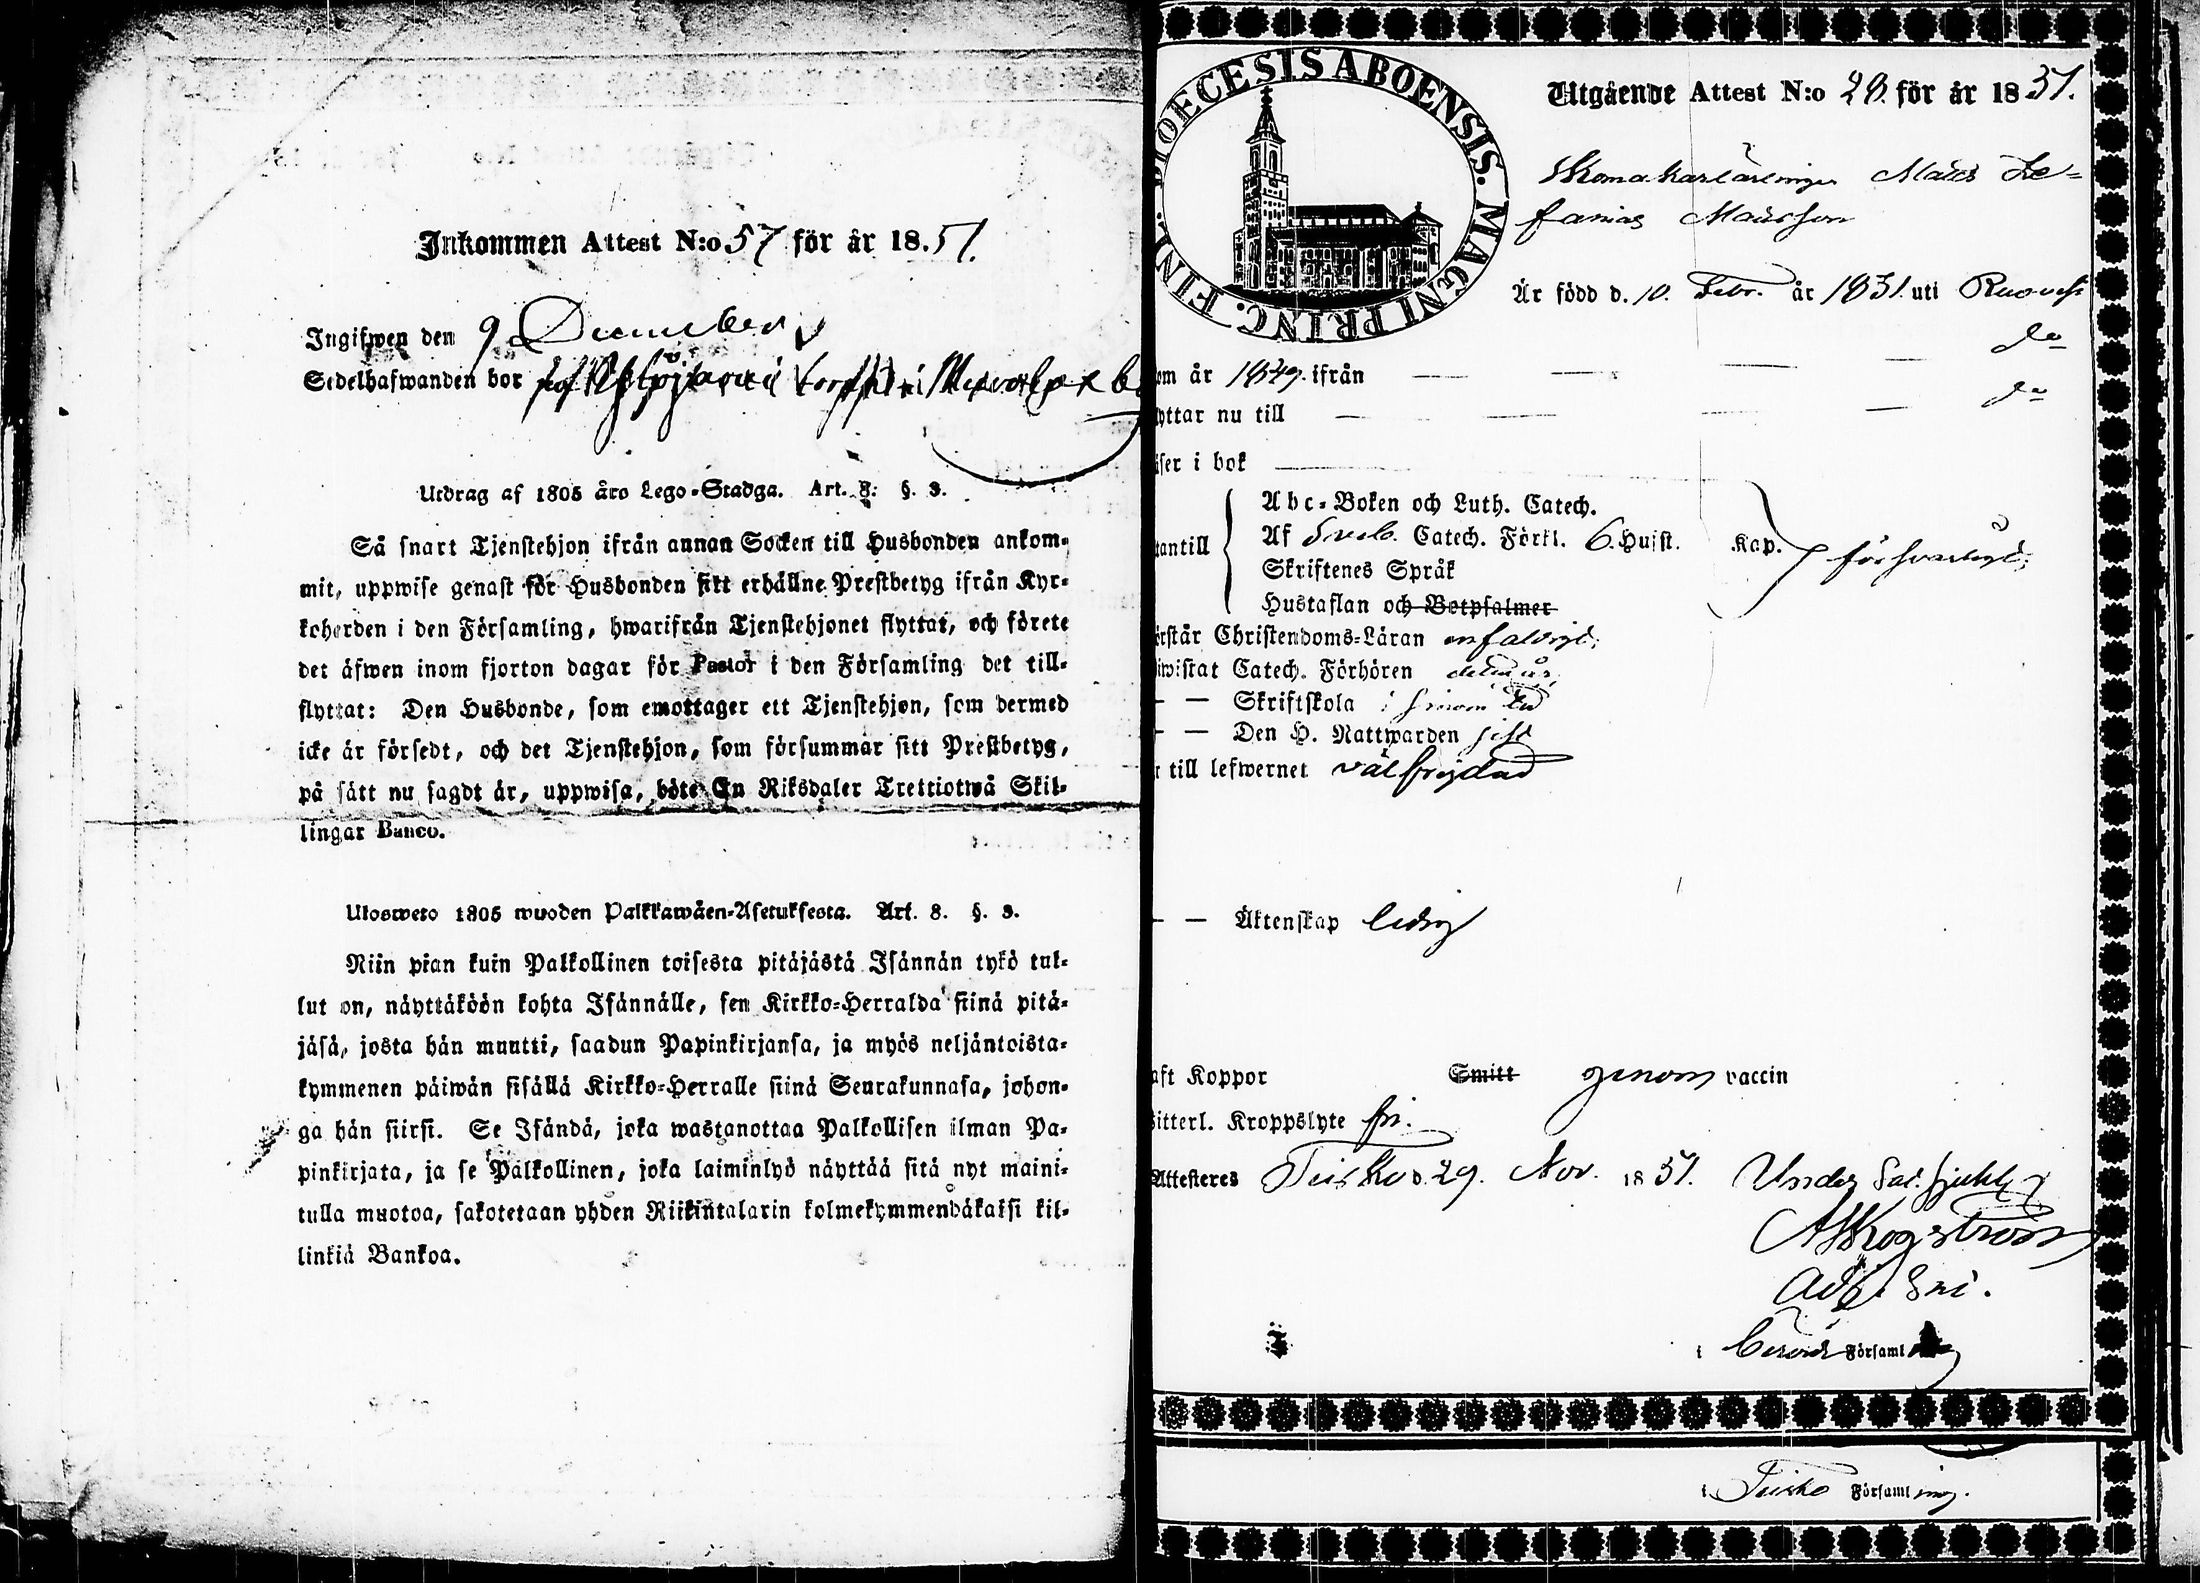 Inkommen Attest N:o 57 för år 18.51.
Ingifwen den 9 December
Sedelhafwanden bor
Utdrag af 1805 års Lego-Stadga. Art. 8: §. 3.
Så snart Tjenstehjon ifrån annan Socken till Husbonden ankom-
mit, uppwise genast för Husbonden sitt erhållne Prestbetyg ifrån Kyr-
koherden i den Församling, hwarifrån Tjenstehjonet flyttat, och förete
det äfwen inom fjorton dagar för Pastor i den Församling det till-
flyttat: Den Husbonde, som emottager ett Tjenstehjon, som dermed
icke är försedt, och det Tjenstehjon, som försummar sitt Prestbetyg,
på sätt nu sagdt är, uppwisa, böte En Riksdaler Trettiotwå Skil-
lingar Banco.
Ulosweto 1805 wuoden Palkkawäen-Asetuksesta. Art. 8. §. 3.
Niin pian kuin Palkollinen toisesta pitäjästä Isännän tykö tul-
lut on, näyttäköön kohta Isännälle, sen Kirkko-Herralda siinä pitä-
jäsä, josta hän muutti, saadun Papinkirjansa, ja myös neljäntoista-
kymmenen päiwän sisällä Kirkko-Herralle siinä Seurakunnasa, johon-
ga hän siirsi. Se Isändä, joka wastanottaa Palkollisen ilman Pa-
pinkirjata, ja se Palkollinen, joka laiminlyö näyttää sitä nyt maini-
tulla muotoa, sakotetaan yhden Riikintalarin kolmekymmendäkaksi kil-
linkiä Bankoa.
DIOECESIS ABOENSIS. MAGNI PRINC. FINL.
Utgående Attest N:o 28. för år 1851.
Skomakarlärlingen Matts Ze=
fanias Mattsson
Är född d. 10. Febr. år 1831. uti Ruovesi
om år 1849. ifrån — — — do
yttar nu till — — — do
äser i bok
tantill
Abc-Boken och Luth. Catech.
Af Sveb. Catech. Förkl. 6. Hufst. Kap. försvarligt;
Skriftenes Språk
Hustaflan och Botpsalmer
örstår Christendoms-Läran enfaldigt;
iwistat Catech. Förhören
— — Skriftskola i sinom tid
— — Den H. Nattwarden sist
r till lefwernet välfrejdad
— — Äktenskap ledig
aft Koppor Smitt genom vaccin
sitterl. Kroppslyte fri.
Attesteres Teisko d. 29. Nov. 1851. Under
A Skogström
Adj. Sac.
i Församl
i Teisko Församling.